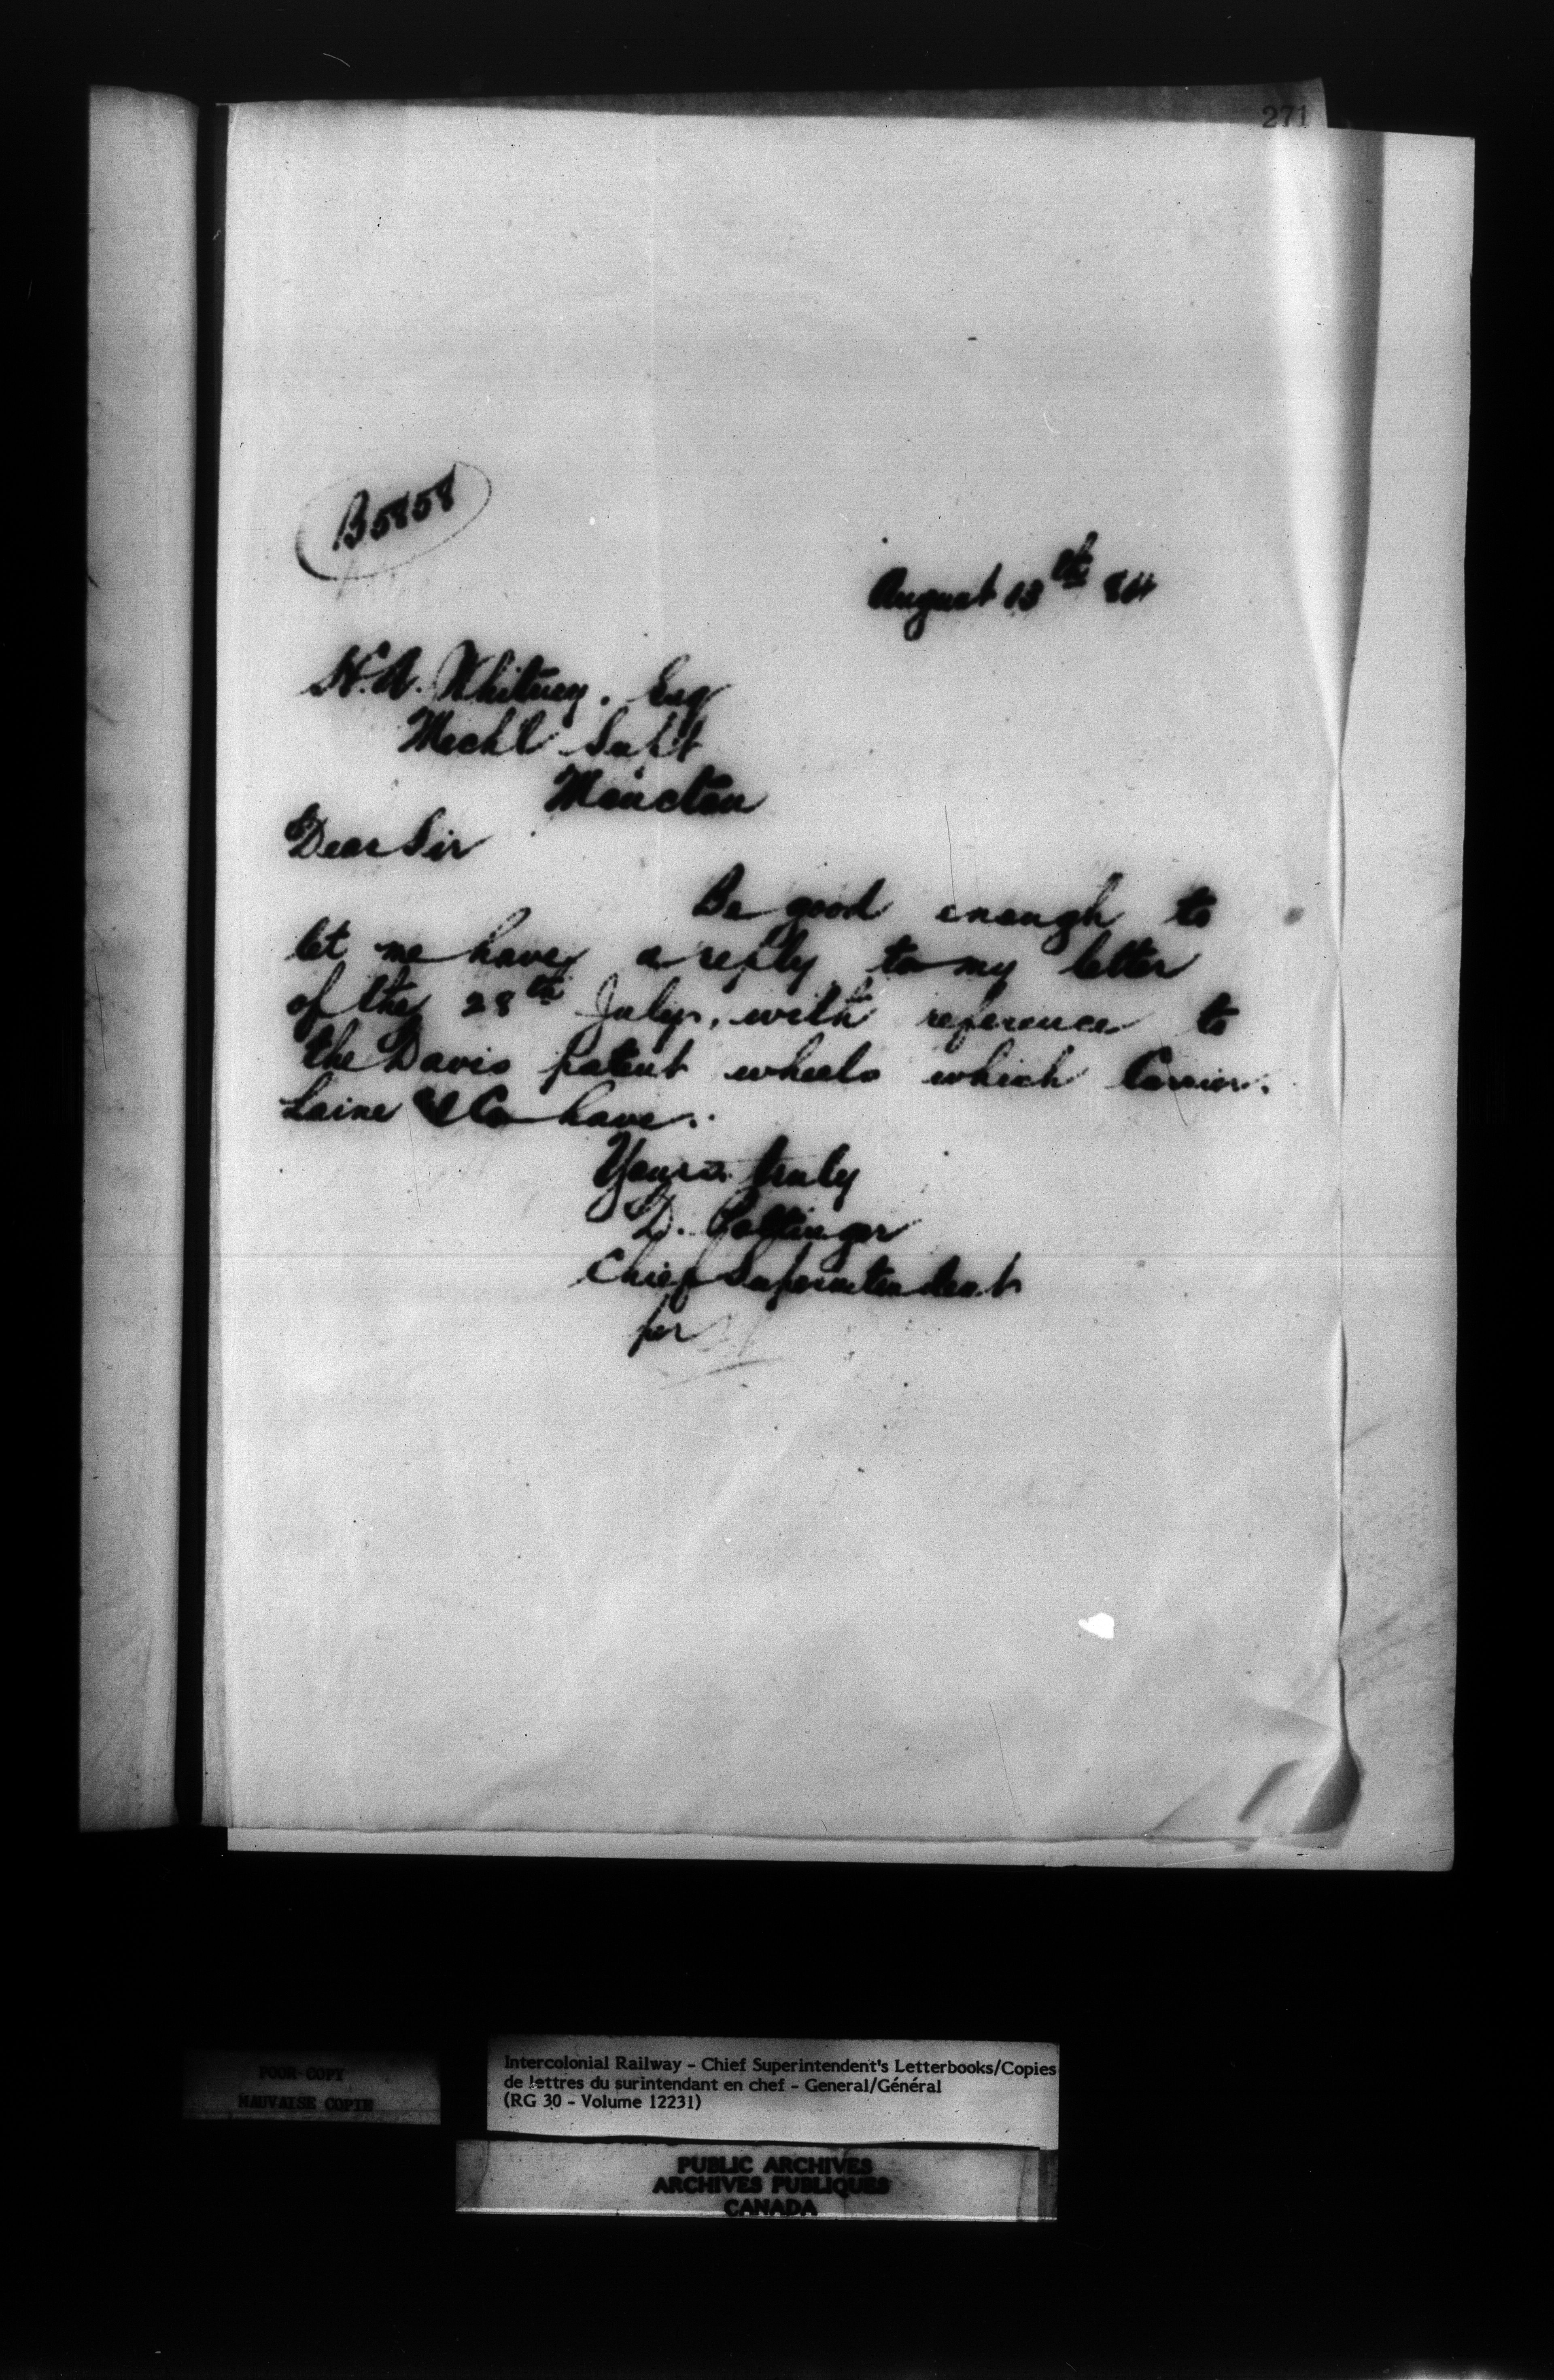 271
B5858
August 13th 84
H.A. Whitney. Esq
Mechl Supt
Moncton
Dear Sir
Be good enough to
let me have a reply to my letter
of the 28th July, with reference to
the Davis patent wheels which Carrier.
Laine & Co have.
Yours truly
D. Pottinger
Chief Superintendent
per
POOR COPY
MAUVAISE COPIE
Intercolonial Railway - Chief Superintendent's Letterbooks/Copies
de lettres du surintendant en chef - General/Général
(RG 30 - Volume 12231)
PUBLIC ARCHIVES
ARCHIVES PUBLIQUES
CANADA